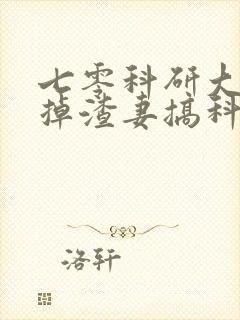 七零科研大
掉渣妻搞科
洛轩